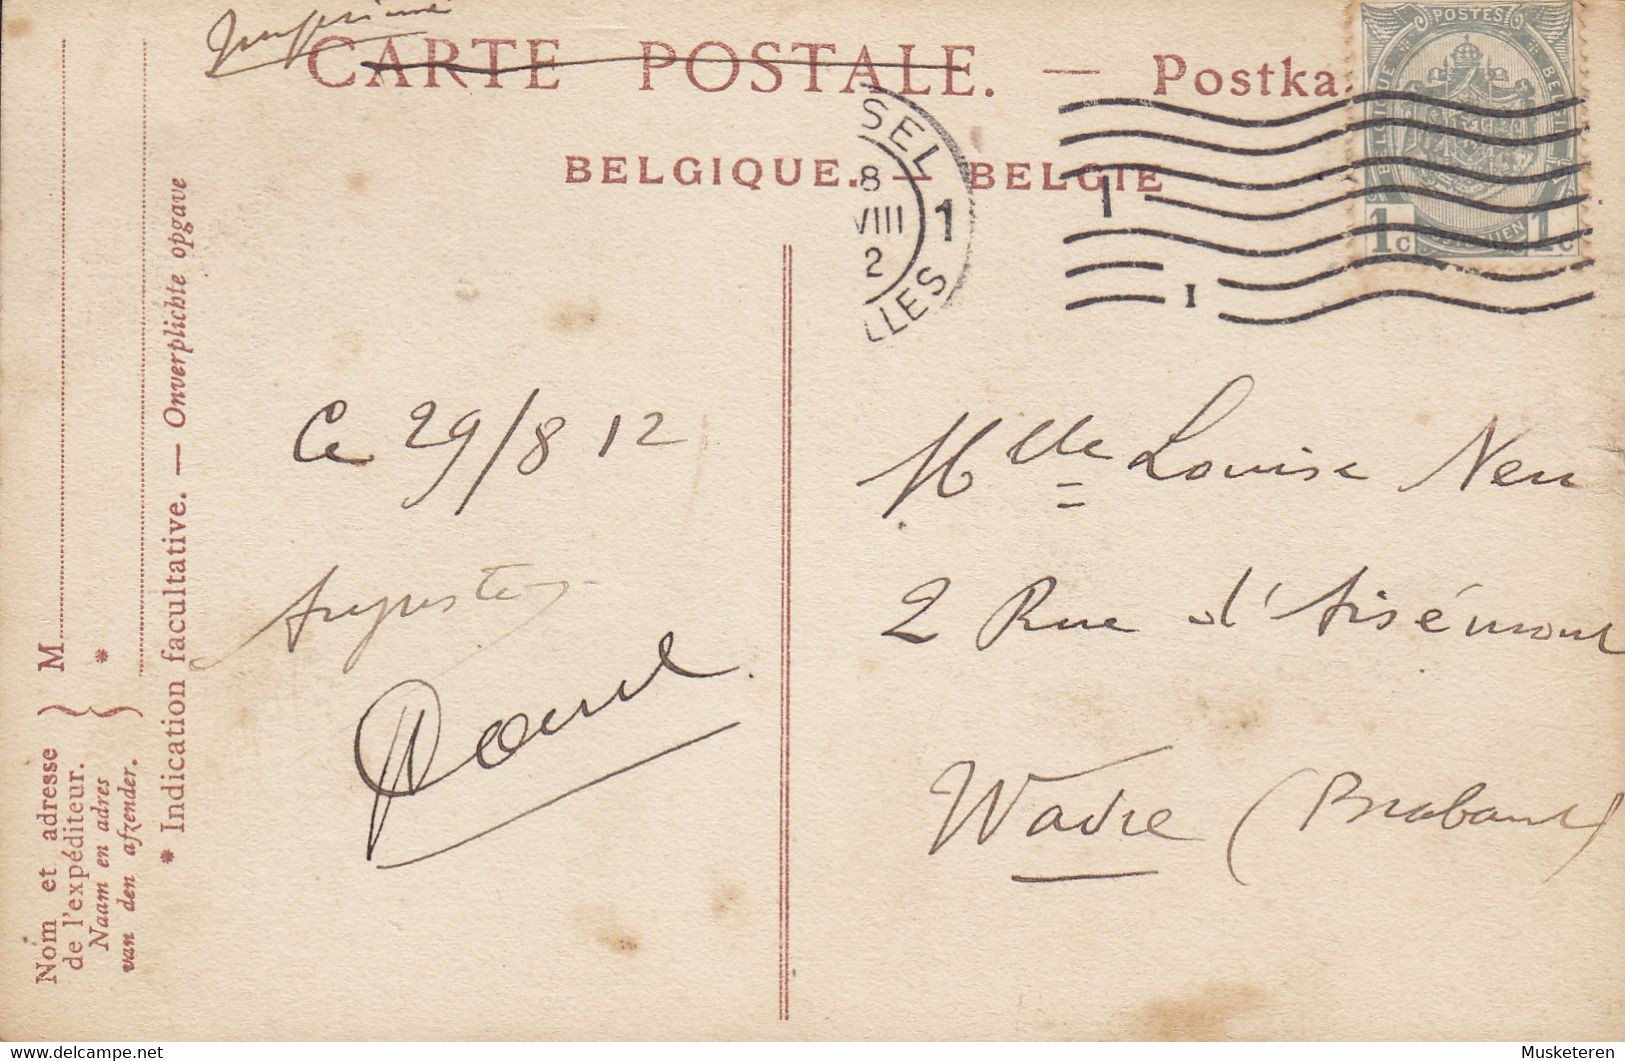 Imprimé
CARTE POSTALE. — Postka
BELGIQUE. — BELGIE
POSTES
BELGIQUE
1c 1c
SEL
8
VIII
2
1
LLES
1
I
Ce 29/8 12
Mlle Louise Neu
2 Rue d'
Wavre (Brabant)
M
*
Nom et adresse
de l'expéditeur.
Naam en adres
van den afzender.
* Indication facultative. — Onverplichte opgave
delcampe.net
Musketeren